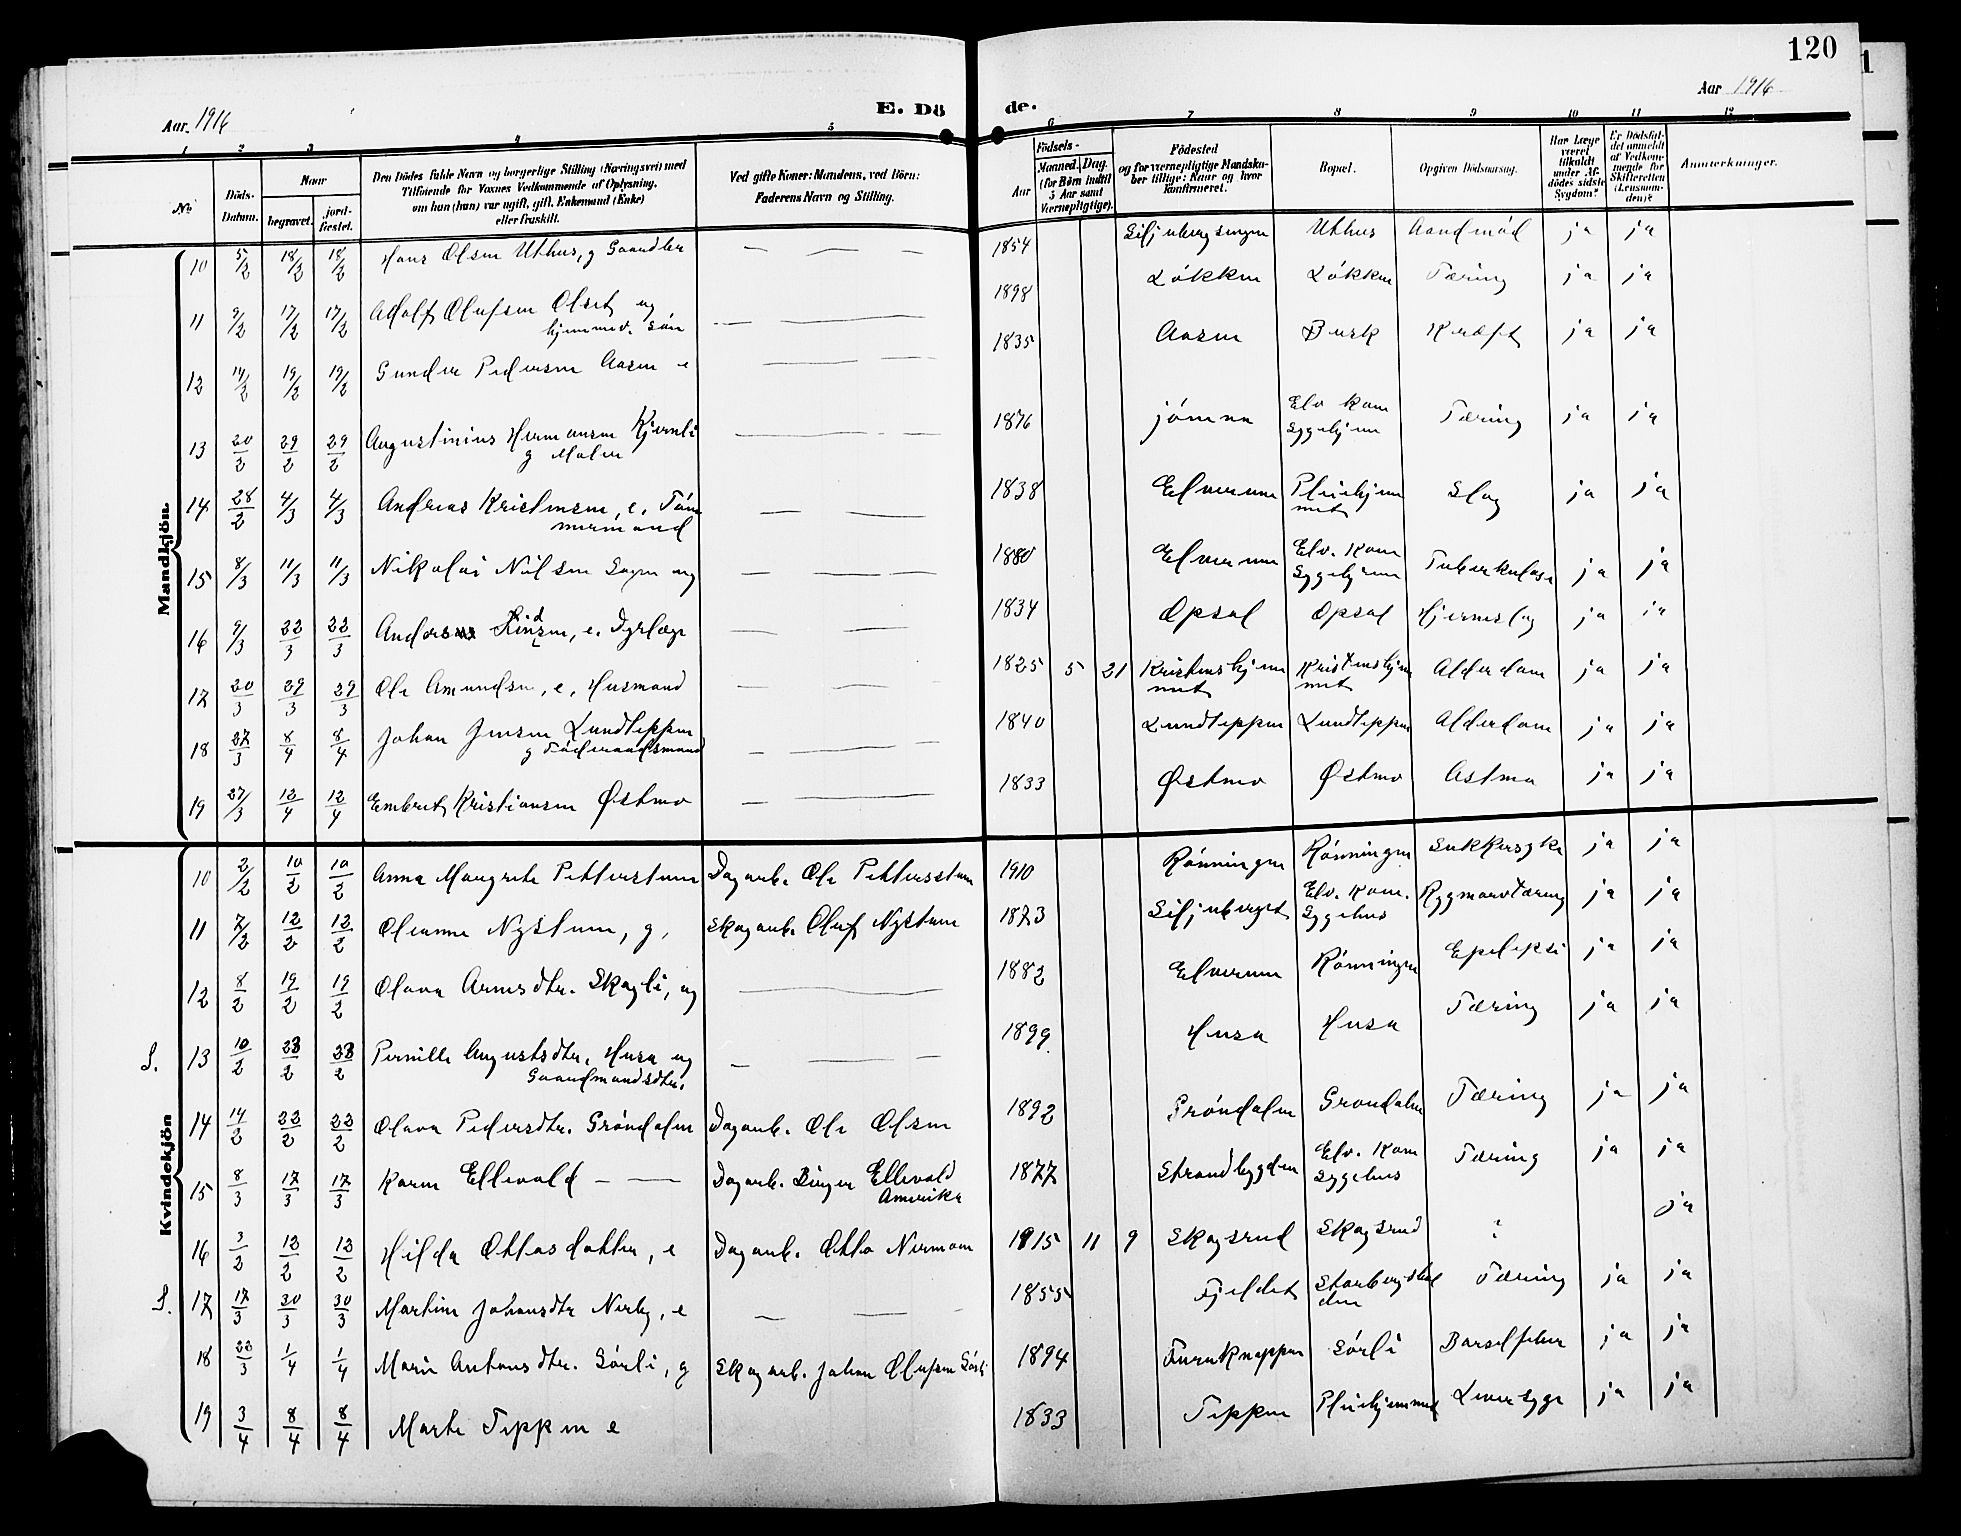 120
1
Aar 1916
E. Dö de.
Aar 1916
1 2 3 4 5 6 7 8 9 10 11 12
No
Döds-Datum.
Naar begravet. jord-fæstet.
Den Dödes fulde Navn og borgerlige Stilling (Næringsvei) med Tilföiende for Voxnes Vedkommende af Oplysning, om han (hun) var ugift, gift, Enkemand (Enke) eller fraskilt.
Ved gifte Koner: Mandens, ved Börn: Faderens Navn og Stilling.
Födsels- Aar Maaned. Dag. (for Börn indtil 5 Aar samt Værnepligtige).
Födested og for værnepligtige Mandskaber tillige: Naar og hvor Konfirmeret.
Bopæl.
Opgiven Dödsaarsag.
Har Læge været tilkaldt under Afdödes sidste Sygdom?
Er Dödsfaldet anmeldt af Vedkommende for Skifteretten (Lensmanden)?
Anmærkninger.
Mandkjön.
10 5/2 18/2 18/2 Hans Olsen Uthus, g Gaardbr — — — 1854 Uthus Aandnød ja ja
11 9/2 17/2 17/2 Adolf Olufsen Olset ug hjemmev. Søn — — 1898 Løkken Løkken Tæring ja ja
12 14/2 19/2 19/2 Gunder Pedersen Aasen e — — 1835 Aasen Busk Kræft ja ja
13 20/2 29/2 29/2 Augustinius Hermansen Kjernli g Maler — — — 1876 Jømna Elv Kom Sygehjem Tæring ja ja
14 28/2 4/3 4/3 Andreas Kristensen, e, Tømmermand — — 1838 Elverum Pleiehjemmet Slag ja ja
15 8/3 11/3 11/3 Nikolai Nilsen ug — — — 1880 Elverum Elv. Kom Sygehjem Tuberkulose ja ja
16 9/3 22/3 22/3 Anders e. Dyrlæge — — 1834 Opsal Opsal Hjerneslag ja ja
17 20/3 29/3 29/3 Ole Amundsen, e, Husmand — — — 1825 5 21 Kristenshjemmet Kristenshjemmet Alderdom ja ja
18 27/3 8/4 8/4 Johan Jensen Lundteppen g Føderaadsmand — — — 1840 Lundteppen Lundteppen Alderdom ja ja
19 27/3 12/4 12/4 Embret Kristiansen Østmo — — 1833 Østmo Østmo Astma ja ja
Kvindekjön
10 2/2 10/2 10/2 Anna Margrete Petterstuen Dagarb. Ole Pettersstuen 1910 Rønningen Rønningen Sukkersyke ja ja
11 7/2 12/2 12/2 Oleanna Nystuen, g, Skogarb. Oluf Nystuen 1873 Siljuberget Elv. Kom. Sygehus Rygmarvtæring ja ja
12 8/2 19/2 19/2 Olava Arnesdtr. Skogli, ug — 1882 Elverum Rønningen Epilepsi ja ja
S. 13 10/2 23/2 23/2 Pernille Augustsdtr. Husa ug Gaardmandsdtr. — — — 1899 Husa Husa Tæring ja ja
14 14/2 22/2 22/2 Olava Pedersdtr. Grøndalen Dagarb. Ole Olsen 1892 Grøndalen Grøndalen Tæring ja ja
15 8/3 17/3 17/3 Karen Ellevold — — Dagarb. Birger Ellevold Amerika 1877 Strandbygden Elv. Kom Sygehus Tæring ja ja
16 3/2 12/2 12/2 Hilda Ottosdatter, e Dagarb. Otto Nermoen 1915 11 9 Skogsrud Skogsrud ? ja
S. 17 17/3 30/3 30/3 Martine Johansdtr Nerby, e — — 1855 Fjeldet Tæring ja ja
18 22/3 1/4 1/4 Marie Antonsdtr. Sørli, g Skogarb. Johan Olufsen Sørli 1894 Furuknappen Sørli Barselfeber ja ja
19 3/4 8/4 8/4 Marte Teppen e 1833 Teppen Pleiehjemmet Leversyge ja ja